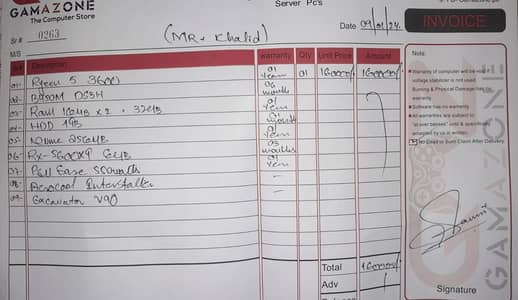 GAMAZONE
The Computer Store
Server Pc's
Sr# 0263
(Mr. Khalid)
Date 09/01/24
INVOICE
M/S
Description warranty Qty Unit Price Amount
01- Ryzen 5 3600 01 Year 01 160000/ 160000/
02- B450M DS3H 06 months
03- Ram 16GB x 2 . 32GB 01 Year
04- HDD 1TB 01 month
05- NVme 256GB 01 Year
06- Rx-5600XT 6GB 03 months
07- 500watt 01 Year
08- Aerocool Interstaller -
09- Excavator V90 -
Total 160000/
Adv
Note:
Warranty of computer will be void if
voltage stabilizer is not used.
Burning & Physical Damage has no
warranty.
Software has no warranty.
All warranties are subject to
accepted by us in written.
No Dead or Burn Claim After Delivery
GAMAZONE
Signature